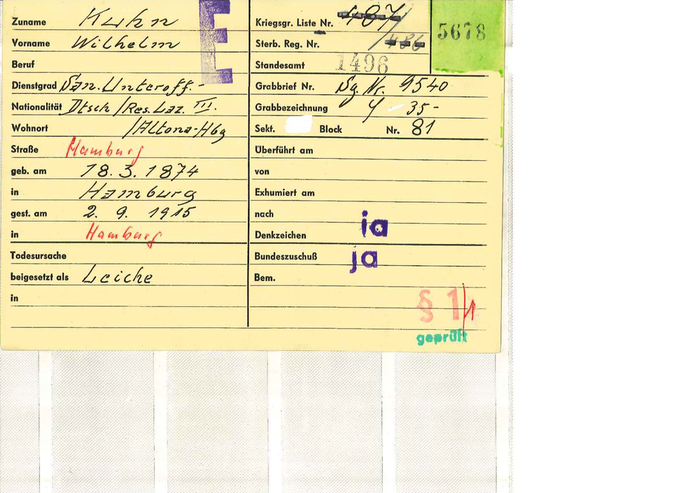 Zuname Kuhn
Vorname Wilhelm
Beruf
Dienstgrad San. Unteroff.-
Nationalität Dtsch /Res. Laz. III.
Wohnort /Altona-Hbg
Straße Hamburg
geb. am 18. 3. 1874
in Hamburg
gest. am 2. 9. 1915
in Hamburg
Todesursache
beigesetzt als Leiche
in
E
Kriegsgr. Liste Nr. 487
Sterb. Reg. Nr. /486
Standesamt 1496
5678
Grabbrief Nr. Sg. Nr. 9540
Grabbezeichnung Y 35-
Sekt. Block Nr. 81
Überführt am
von
Exhumiert am
nach
Denkzeichen ja
Bundeszuschuß ja
Bem.
§ 1/1
geprüft